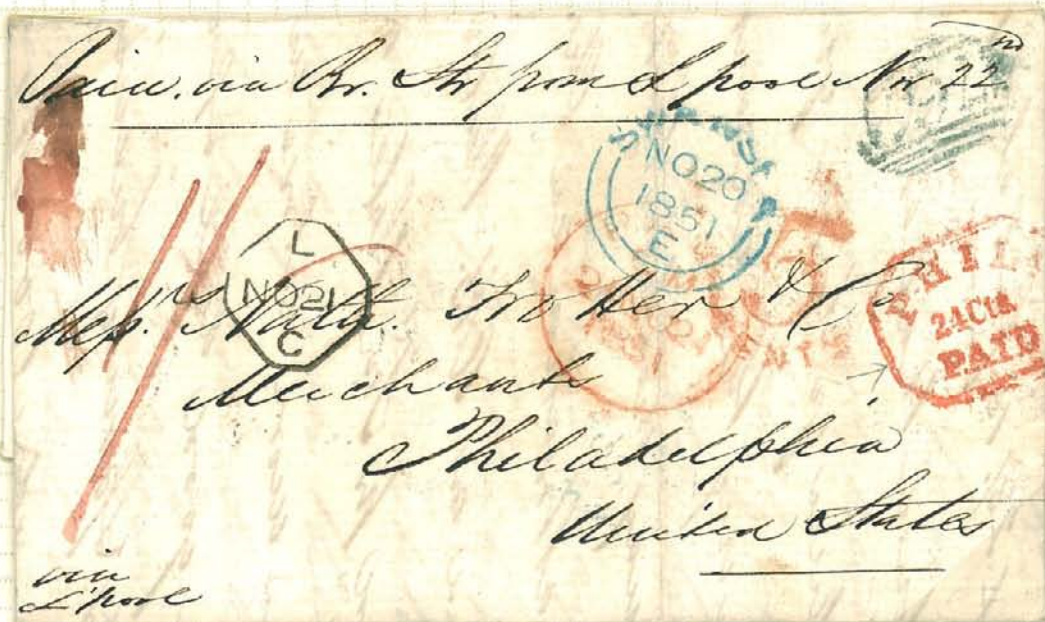 Paid. via Br. Str from L'pool Nov 22nd
SWANSEA
NO 20
1851
E
L
NO 21
C
1/
PHIL
24 Cts
PAID
CENTS
1851
Messrs. Nathl. Trotter & Co
Merchants
Philadelphia
United States
via
L'pool